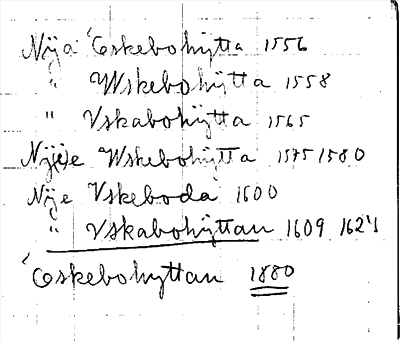 Nija Eskebohytta 1556
" Wskebohÿtta 1558
" Vskabohÿtta 1565
Nÿie Wskebohÿtta 1575/1580
Nÿe Vskeboda 1600
" Vskabohÿttan 1609 1624
Eskebohyttan 1880